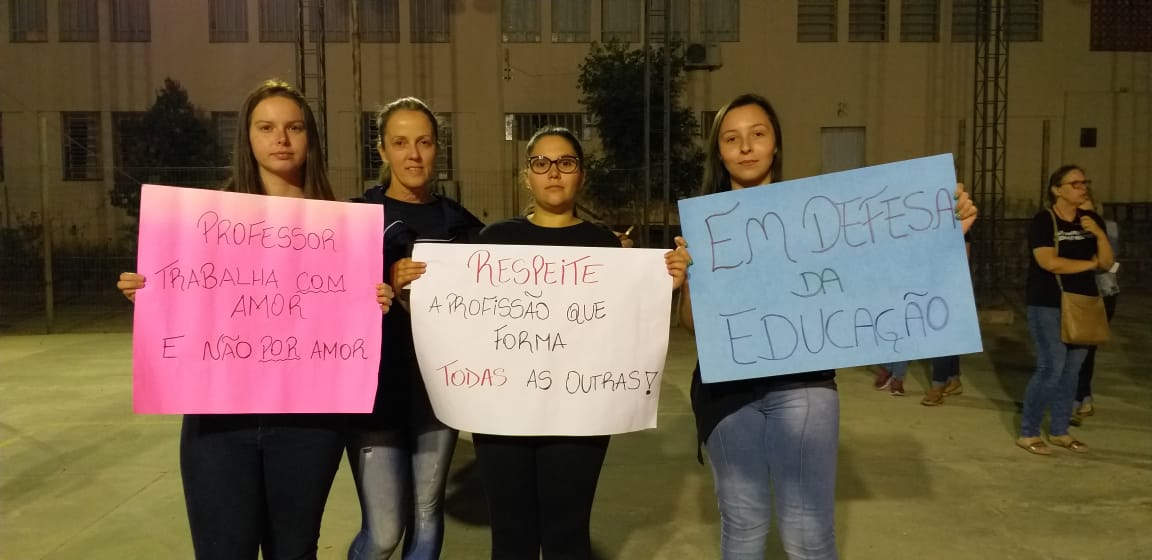 PROFESSOR
TRABALHA COM
AMOR
E NÃO POR AMOR
RESPEITE
A PROFISSÃO QUE
FORMA
TODAS AS OUTRAS!
EM DEFESA
DA
EDUCAÇÃO